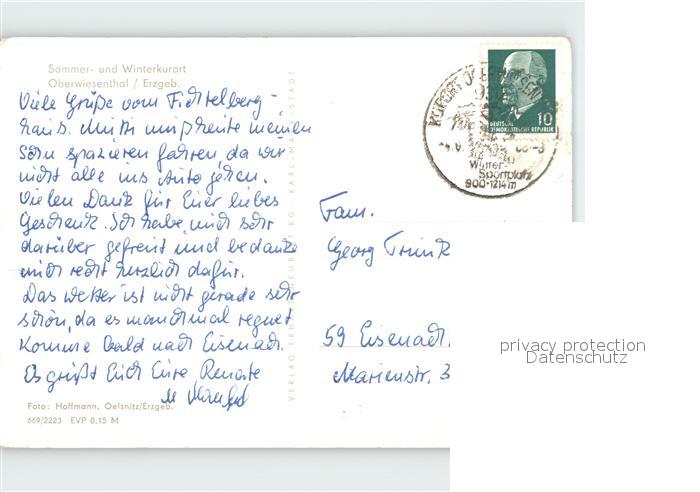 Sommer- und Winterkurort
Oberwiesenthal / Erzgeb.
Viele Grüße vom Fichtelberg-
haus. Mutti muß heute meinen
Sohn spazieren fahren, da wir
nicht alle ins Auto gehen.
Vielen Dank für Euer liebes
Geschenk. Ich habe mich sehr
darüber gefreut und bedanke
mich recht herzlich dafür.
Das Wetter ist nicht gerade sehr
schön, da es manchmal regnet
Komme bald nach Eisenach.
Es grüßt Euch Eure Renate
Foto: Hoffmann, Oelsnitz/Erzgeb.
669/2223 EVP 0,15 M
VERLAG ERHARD NEUBERT KG KARL-MARX-STADT
KURORT OBERWIESENTHAL
Winter-
Sportplatz
900-1214m
DEUTSCHE
DEMOKRATISCHE REPUBLIK
10
Fam.
Georg
59 Eisenach
Marienstr. 3
privacy protection
Datenschutz